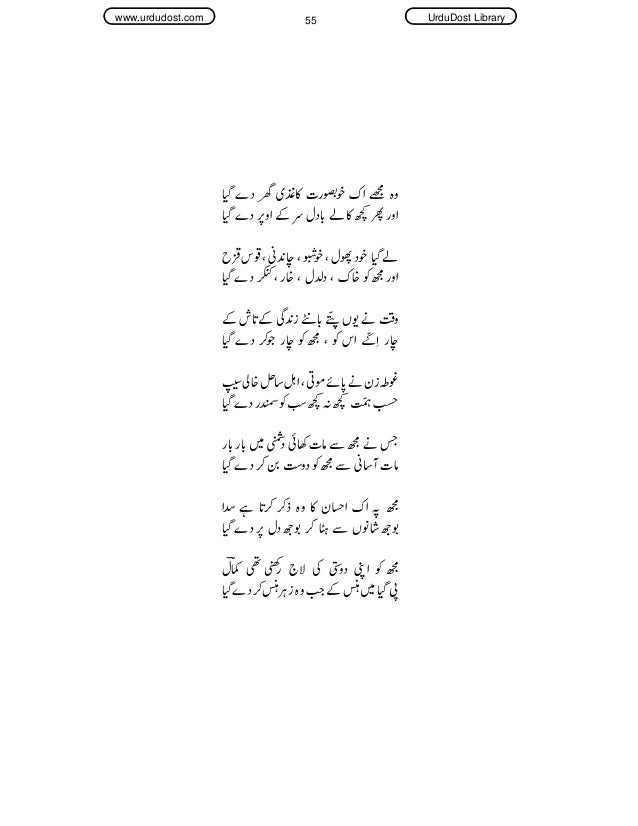 www.urdudost.com
55
UrduDost Library
وہ مجھے اک خوبصورت کاغذی گھر دے گیا
اور پھر کچھ کالے بادل سر کے اوپر دے گیا
لے گیا خود پھول ، خوشبو ، چاندنی ، قوس قزح
اور مجھ کو خاک ، دلدل ، خار ، کنکر دے گیا
وقت نے یوں پتّے بانٹے زندگی کے تاش کے
چار اِکّے اس کو ، مجھ کو چار جوکر دے گیا
غوطہ زن نے پائے موتی ، اہل ساحل خالی سیپ
حسب ہمّت کچھ نہ کچھ سب کو سمندر دے گیا
جس نے مجھ سے مات کھائی دشمنی میں بار بار
مات آسانی سے مجھ کو دوست بن کر دے گیا
مجھ پہ اک احسان کا وہ ذکر کرتا ہے سدا
بوجھ شانوں سے ہٹا کر بوجھ دل پر دے گیا
مجھ کو اپنی دوستی کی لاج رکھنی تھی کمالؔ
پی گیا میں ہنس کے جب وہ زہر ہنس کر دے گیا